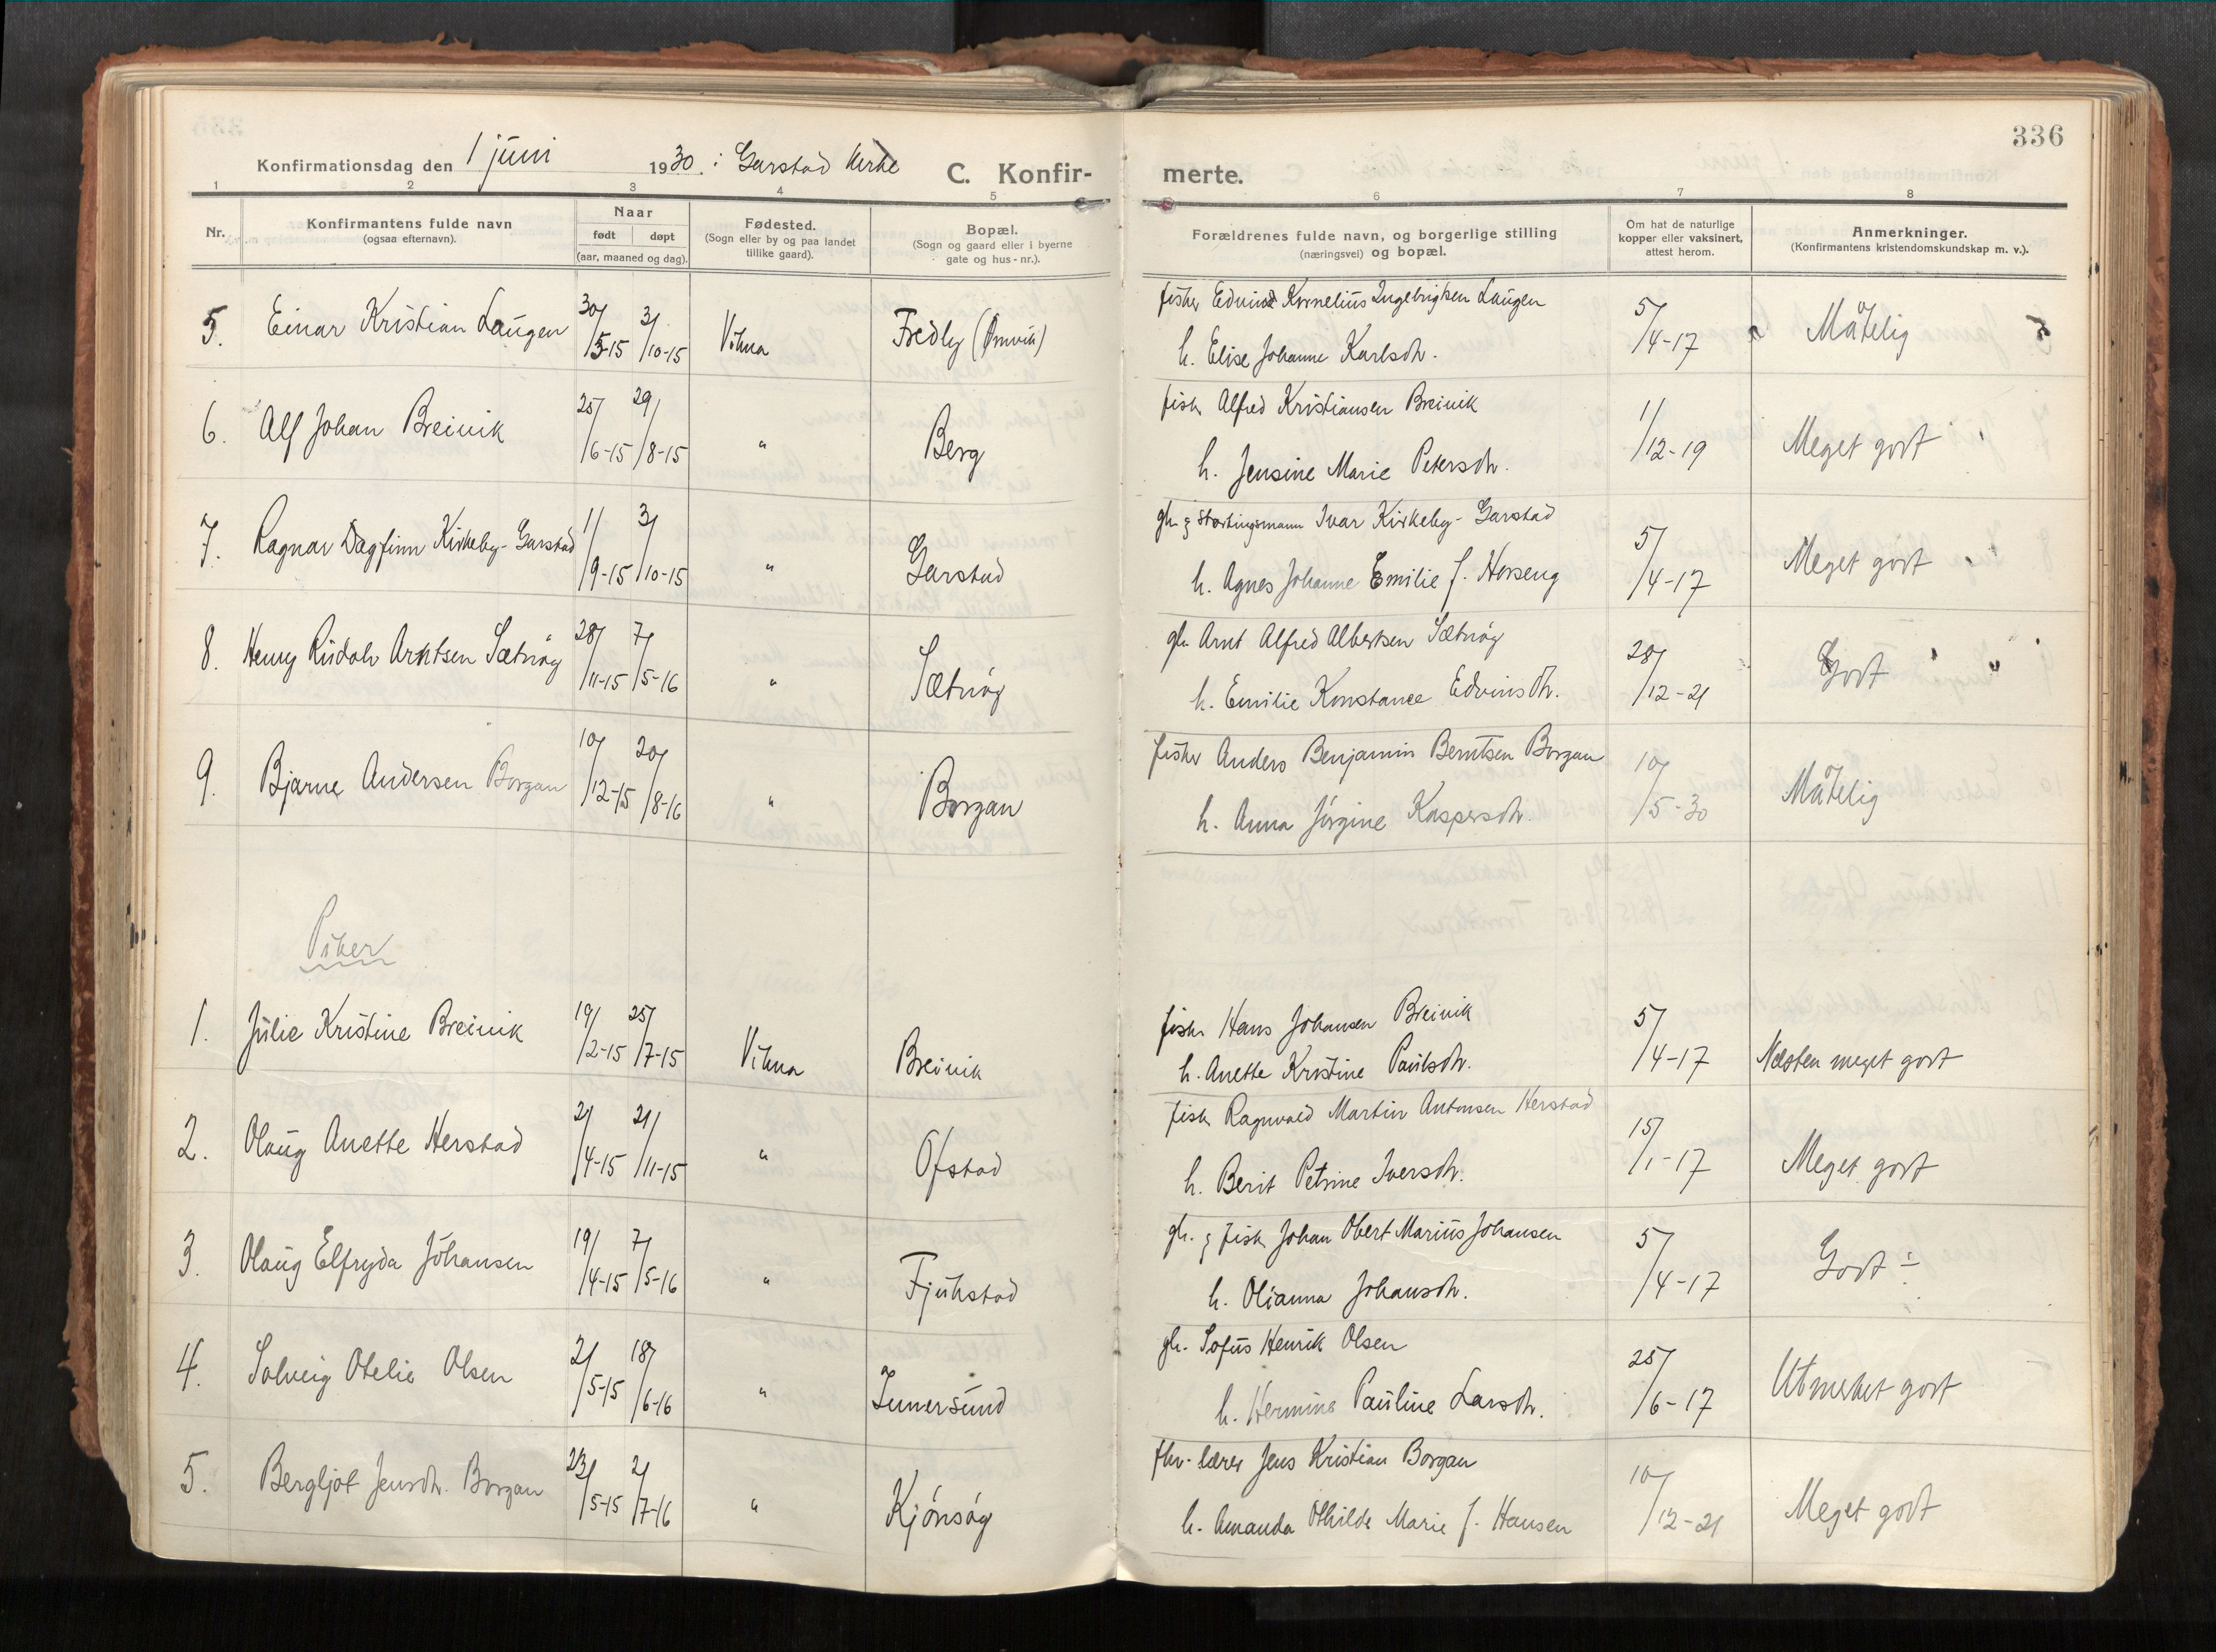 336
Konfirmationsdag den 1 juni 1930. i Garstad kirke C. Konfir- merte.
1 2 3 4 5 6 7 8
Nr. Konfirmantens fulde navn (ogsaa efternavn). Naar født døpt (aar, maaned og dag). Fødested. (Sogn eller by og paa landet tillike gaard). Bopæl. (Sogn og gaard eller i byerne gate og hus-nr.). Forældrenes fulde navn, og borgerlige stilling (næringsvei) og bopæl. Om hat de naturlige kopper eller vaksinert, attest herom. Anmerkninger. (Konfirmantens kristendomskundskap m. v.).
5. Einar Kristian Laugen 30/5-15 3/10-15 Vikna Fredly fisker Edvind Kornelius Ingebrigtsen Laugen 5/4-17 Måtelig
h. Elise Johanne Karlsdtr.
6. Alf Johan Breivik 25/6-15 29/8-15 " Berg fisk. Alfred Kristiansen Breivik 1/12-19 Meget godt
h. Jensine Marie Petersdtr.
7. Ragnar Dagfinn Kirkeby-Garstad 1/9-15 3/10-15 " Garstad gbr. & stortingsmann Ivar Kirkeby-Garstad 5/4-17 Meget godt
h. Agnes Johanne Emilie f. Horseng
8. Henry Rudolv Arntsen Sætvåg 28/11-15 7/5-16 " Sætvåg gbr. Arnt Alfred Albertsen Sætvåg 28/12-21 Godt
h. Emilie Konstance Edvinsdtr.
9. Bjarne Andersen Borgan 10/12-15 20/8-16 " Borgan fisker Anders Benjamin Berntsen Borgan 10/5-30 Måtelig
h. Anna Jørgine Kaspersdtr.
Piker
1. Julie Kristine Breivik 19/2-15 25/7-15 Vikna Breivik fisker Hans Johansen Breivik 5/4-17 Næsten meget godt
h. Anette Kristine Paulsdtr.
2. Olaug Anette Herstad 2/4-15 21/11-15 " Ofstad fisk. Ragnvald Martin Antonsen Herstad 15/1-17 Meget godt
h. Berit Petrine Iversdtr.
3. Olaug Elfryda Johansen 19/4-15 7/5-16 " Fjukstad gbr. & fisk. Johan Obert Marius Johansen 5/4-17 Godt ÷
h. Olianna Johansdtr.
4. Solveig Otelie Olsen 2/5-15 18/6-16 " Innersund gbr. Sofus Henrik Olsen 25/6-17 Utmerket godt
h. Hermine Pauline Larsdtr.
5. Bergljot Jensdtr. Borgan 23/5-15 2/7-16 " Kjønsøy fhv. lærer Jens Kristian Borgan 10/12-21 Meget godt
h. Amanda Othilde Marie f. Hansen